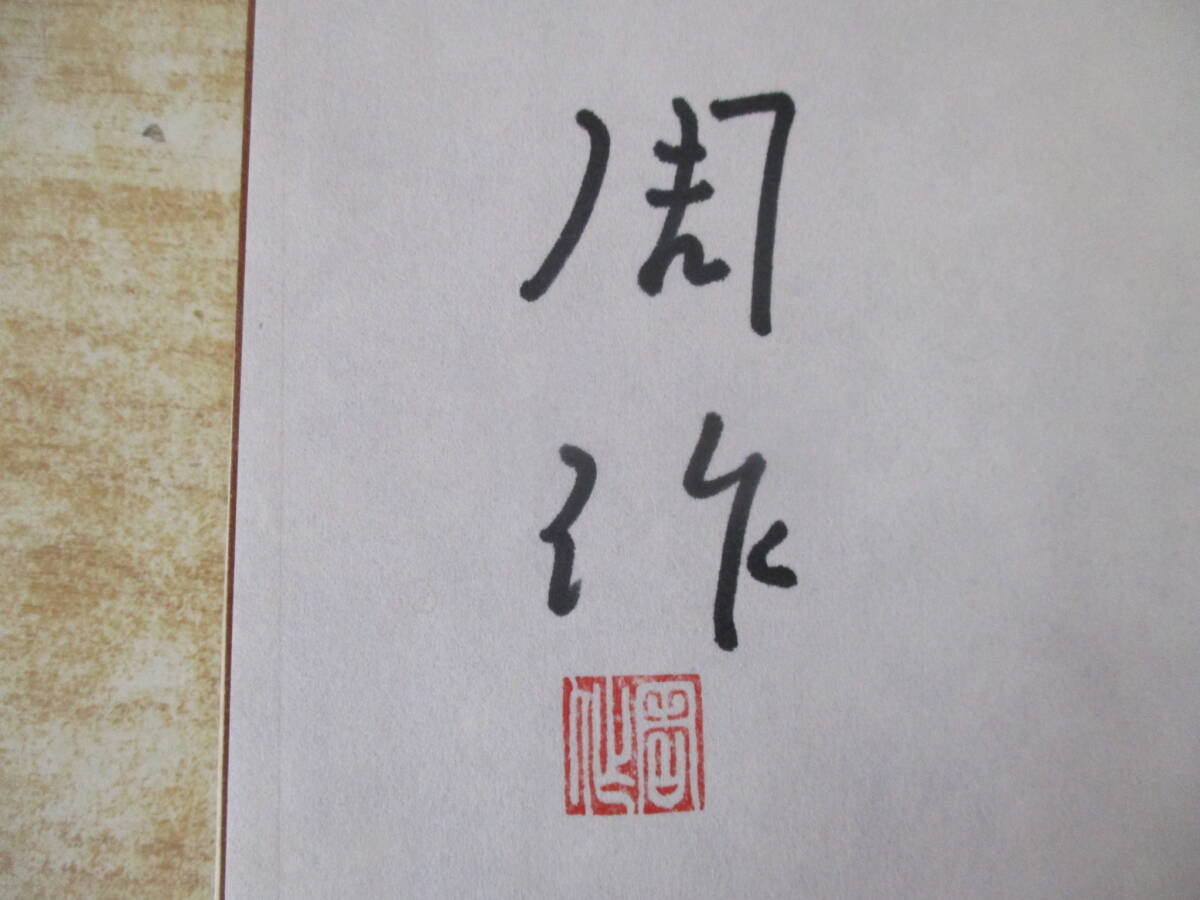 周
作
周作